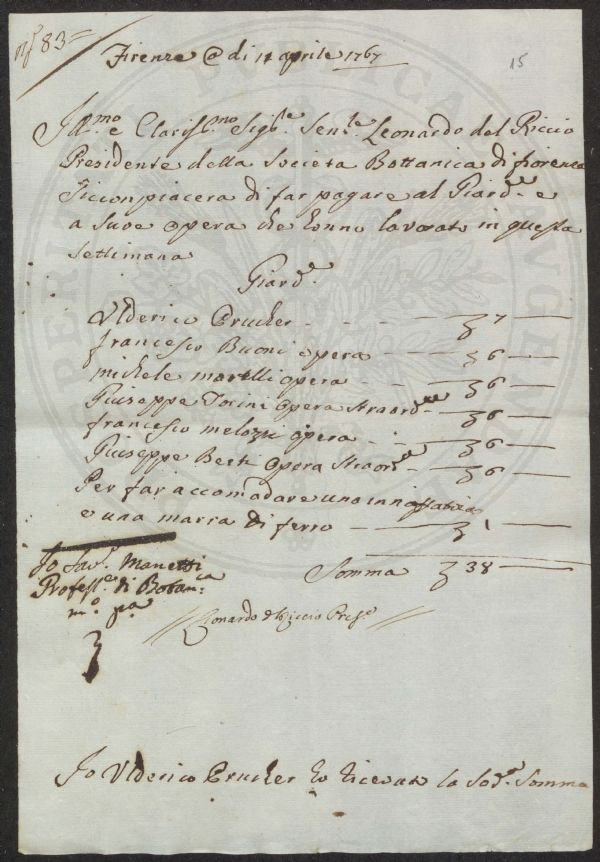 N.º 83=
15
Firenze @ di 11 aprile 1767
Ill.mo e Clariss.mo Sig.re Sen.re Leonardo del Riccio
Presidente della Societa Bottanica di fiorenza
Si conpiacera di far pagare al Giard.e e
a Suoe opera che hanno lavorato in questa
settimana
Giard.e
Vlderico Prucher - - - - 7 —
francesco Buoni opera - - 6 —
michele martelli opera - - - 6 —
Giuseppe Torini Opera Straord.e - 6 —
francesco melozzi opera - - 6 —
Giuseppe Berti Opera Straord.a - 6 —
Per far accomodare uno innaffiatoio
e una marra di ferro — 1 —
Somma 38 —
Io Sav.o Manetti
Profess.e di Botan.ca
m.o p.a
Leonardo del Riccio Pres.e
Io Vlderico Prucher ho ricevuto la Sod.a Somma